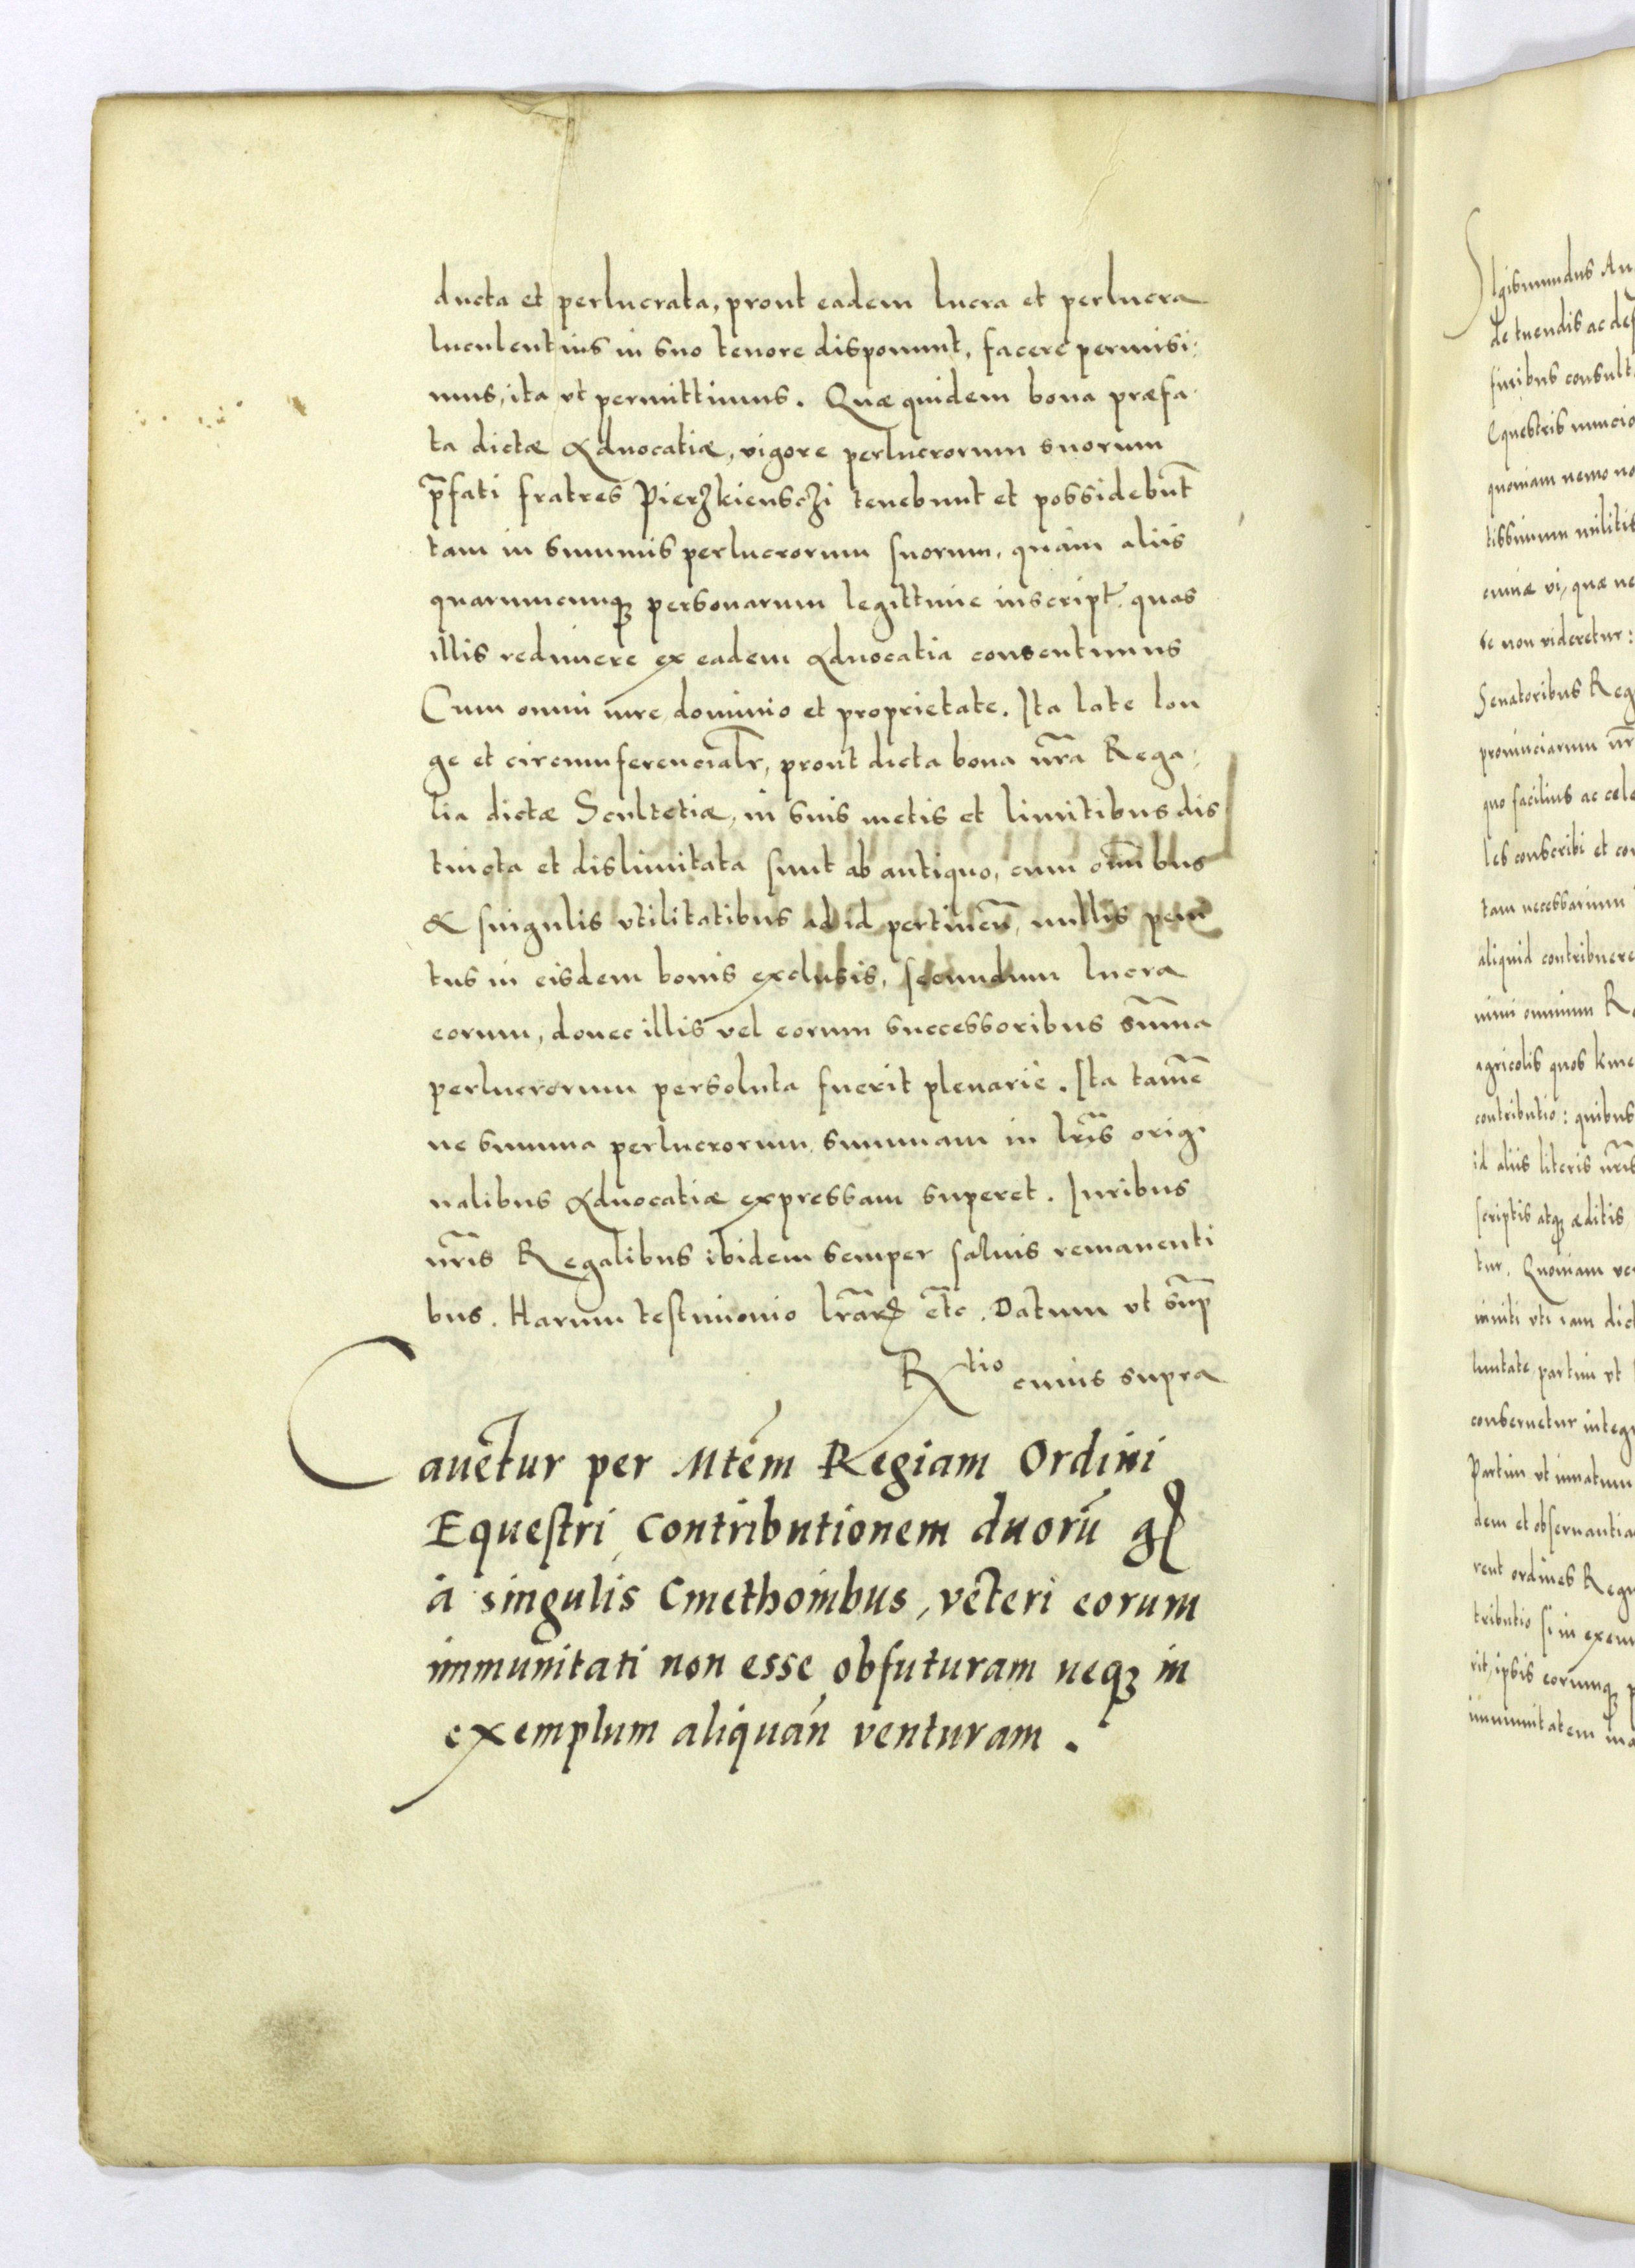 ducta et perlucrata, prout eadem lucra et perlucra
luculentius in suo tenore disponunt, facere permisi:
mus, ita vt permittimus. Quæ quidem bona præfa
ta dictæ Aduocatiæ, vigore perlucrorum suorum
p̃fati fratres Pierzkiensczi tenebunt et possidebũt
tam in summis perlucrorum suorum, quàm aliis
quarumcunqꝫ personarum legittime inscript̃. quas
illis redimere ex eadem Aduocatia consentimus
Cum omni iure, dominio et proprietate. Ita late lon
ge et circumferencial̃r, prout dicta bona nr̃a Rega:
lia dictæ Scultetiæ, in suis metis et limitibus dis
tincta et dislimitata sunt ab antiquo, cum om̃ibus
& singulis vtilitatibus ad id pertineñ, nullis peni
tus in eisdem bonis exclusis, secundum lucra
eorum, donec illis vel eorum successoribus sum̃a
perlucrorum persoluta fuerit plenariè. Ita tamẽ
ne summa perlucrorum, summam in lr̃is origi
nalibus Aduocatiæ expressam superet. Iuribus
nr̃is Regalibus ibidem semper saluis remanenti
bus. Harum testimonio lr̃arꝝ etc̃. Datum vt sup̃
R<sup>tio</sup> cuius supra
Cauet̃ur per Mtẽm Regiam Ordini
Equestri, contributionem duorũ gꝭ
à singulis Cmethonibus, veteri eorum
immunitati non esse obfuturam neqꝫ in
exemplum aliquañ venturam.
Sigismundus Au
de tuendis ac def
finibus consult
Equestris nuncio
quoniam nemo no
tissimum militis
cuniæ vi, quæ ne
se non videretur:
Senatoribus Reg
prouinciarum nr
quo facilius ac cele
les conscribi et con
tam necessarium
aliquid contribuere
nimi omnium R
agricolis quos kme
contributio: quibus
id aliis literis nr̃is
scriptis atqꝫ æditis
tur. Quoniam ve
inniti vti iam dict
luntate, partim vt
conseruetur integr
Partim vt innatum
dem et obseruantia
rent ordines Regn
tributio si in exem
rit, ipsis eorumqꝫ p
immunitatem ma